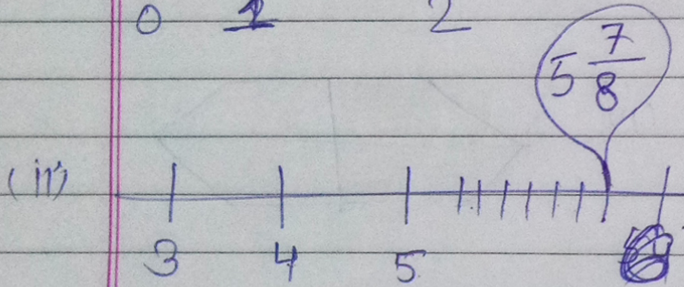 0 1 2
5 7/8
(ii)
3 4 5